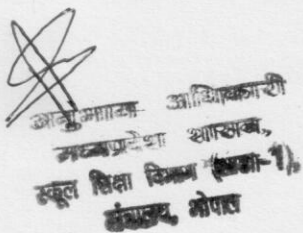 अनुभाग अधिकारी
मध्यप्रदेश शासन,
स्कूल शिक्षा विभाग
मंत्रालय, भोपाल